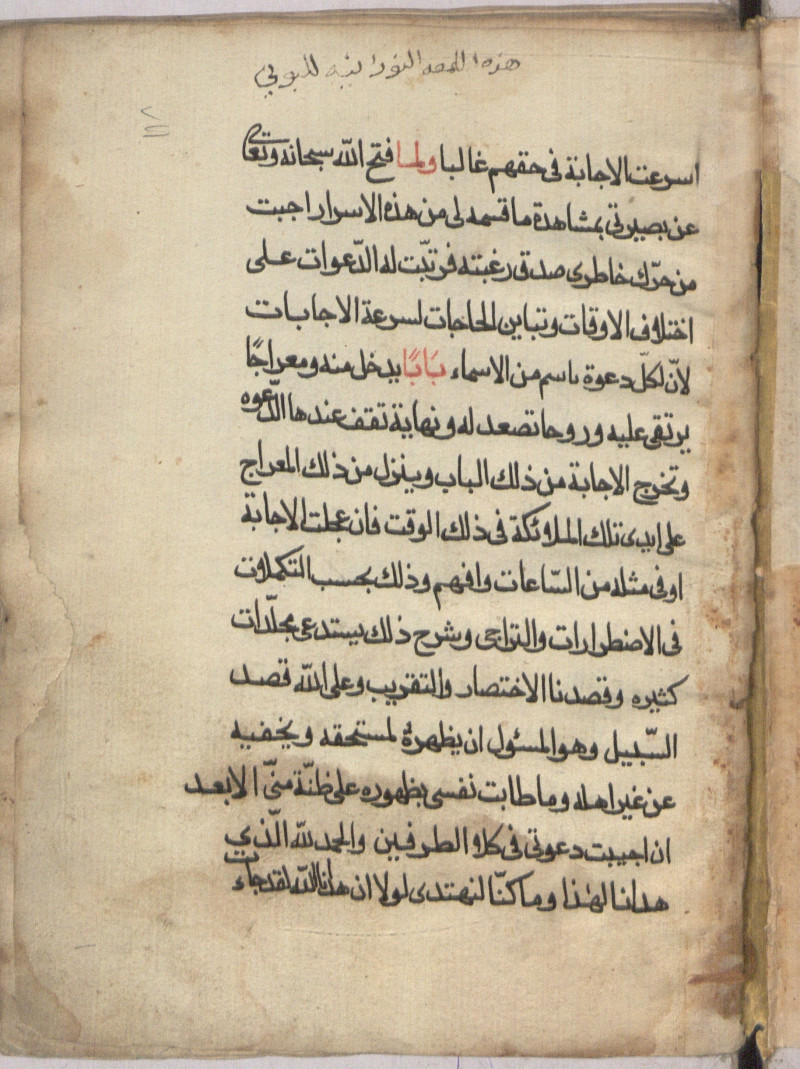 هذه اللمعه النورانيه للبوني
اسرعت الاجابة فى حقهم غالبا ولما فتح الله سبحانه وتعالى
عن بصيرتى بمشاهدة ما قسمه لى من هذه الاسرار اجبت
من حرّك خاطرى صدق رغبته فرتبّت له الدّعوات على
اختلاف الاوقات وتباين الحاجات لسرعة الاجابات
لأنّ لكلّ دعوة باسم من الاسماء بَابًا يدخل منه ومعراجًا
يرتقى عليه وروحا تصعد له ونهاية تقف عندها الدّعوه
وتخرج الاجابة من ذلك الباب وينزل من ذلك المعراج
على ايدى تلك الملائكة فى ذلك الوقت فان عجلت الاجابة
اوفى مثله من السّاعات وافهم وذلك بحسب التكملات
فى الاضطرارات والتراجى وشرح ذلك يستدعى مجلّدات
كثيره وقصدنا الاختصار والتقريب وعلى الله قصد
السّبيل وهو المسئول ان يظهره لمستحقه ويخفيه
عن غير اهله وما طابت نفسى بظهوره على ظنّة منّى الا بعد
ان اجيبت دعوتى فى كلا الطرفين والحمد لله الّذي
هدانا لهٰذا وما كنّا لنهتدى لولا ان هدانا الله لقد جاءت